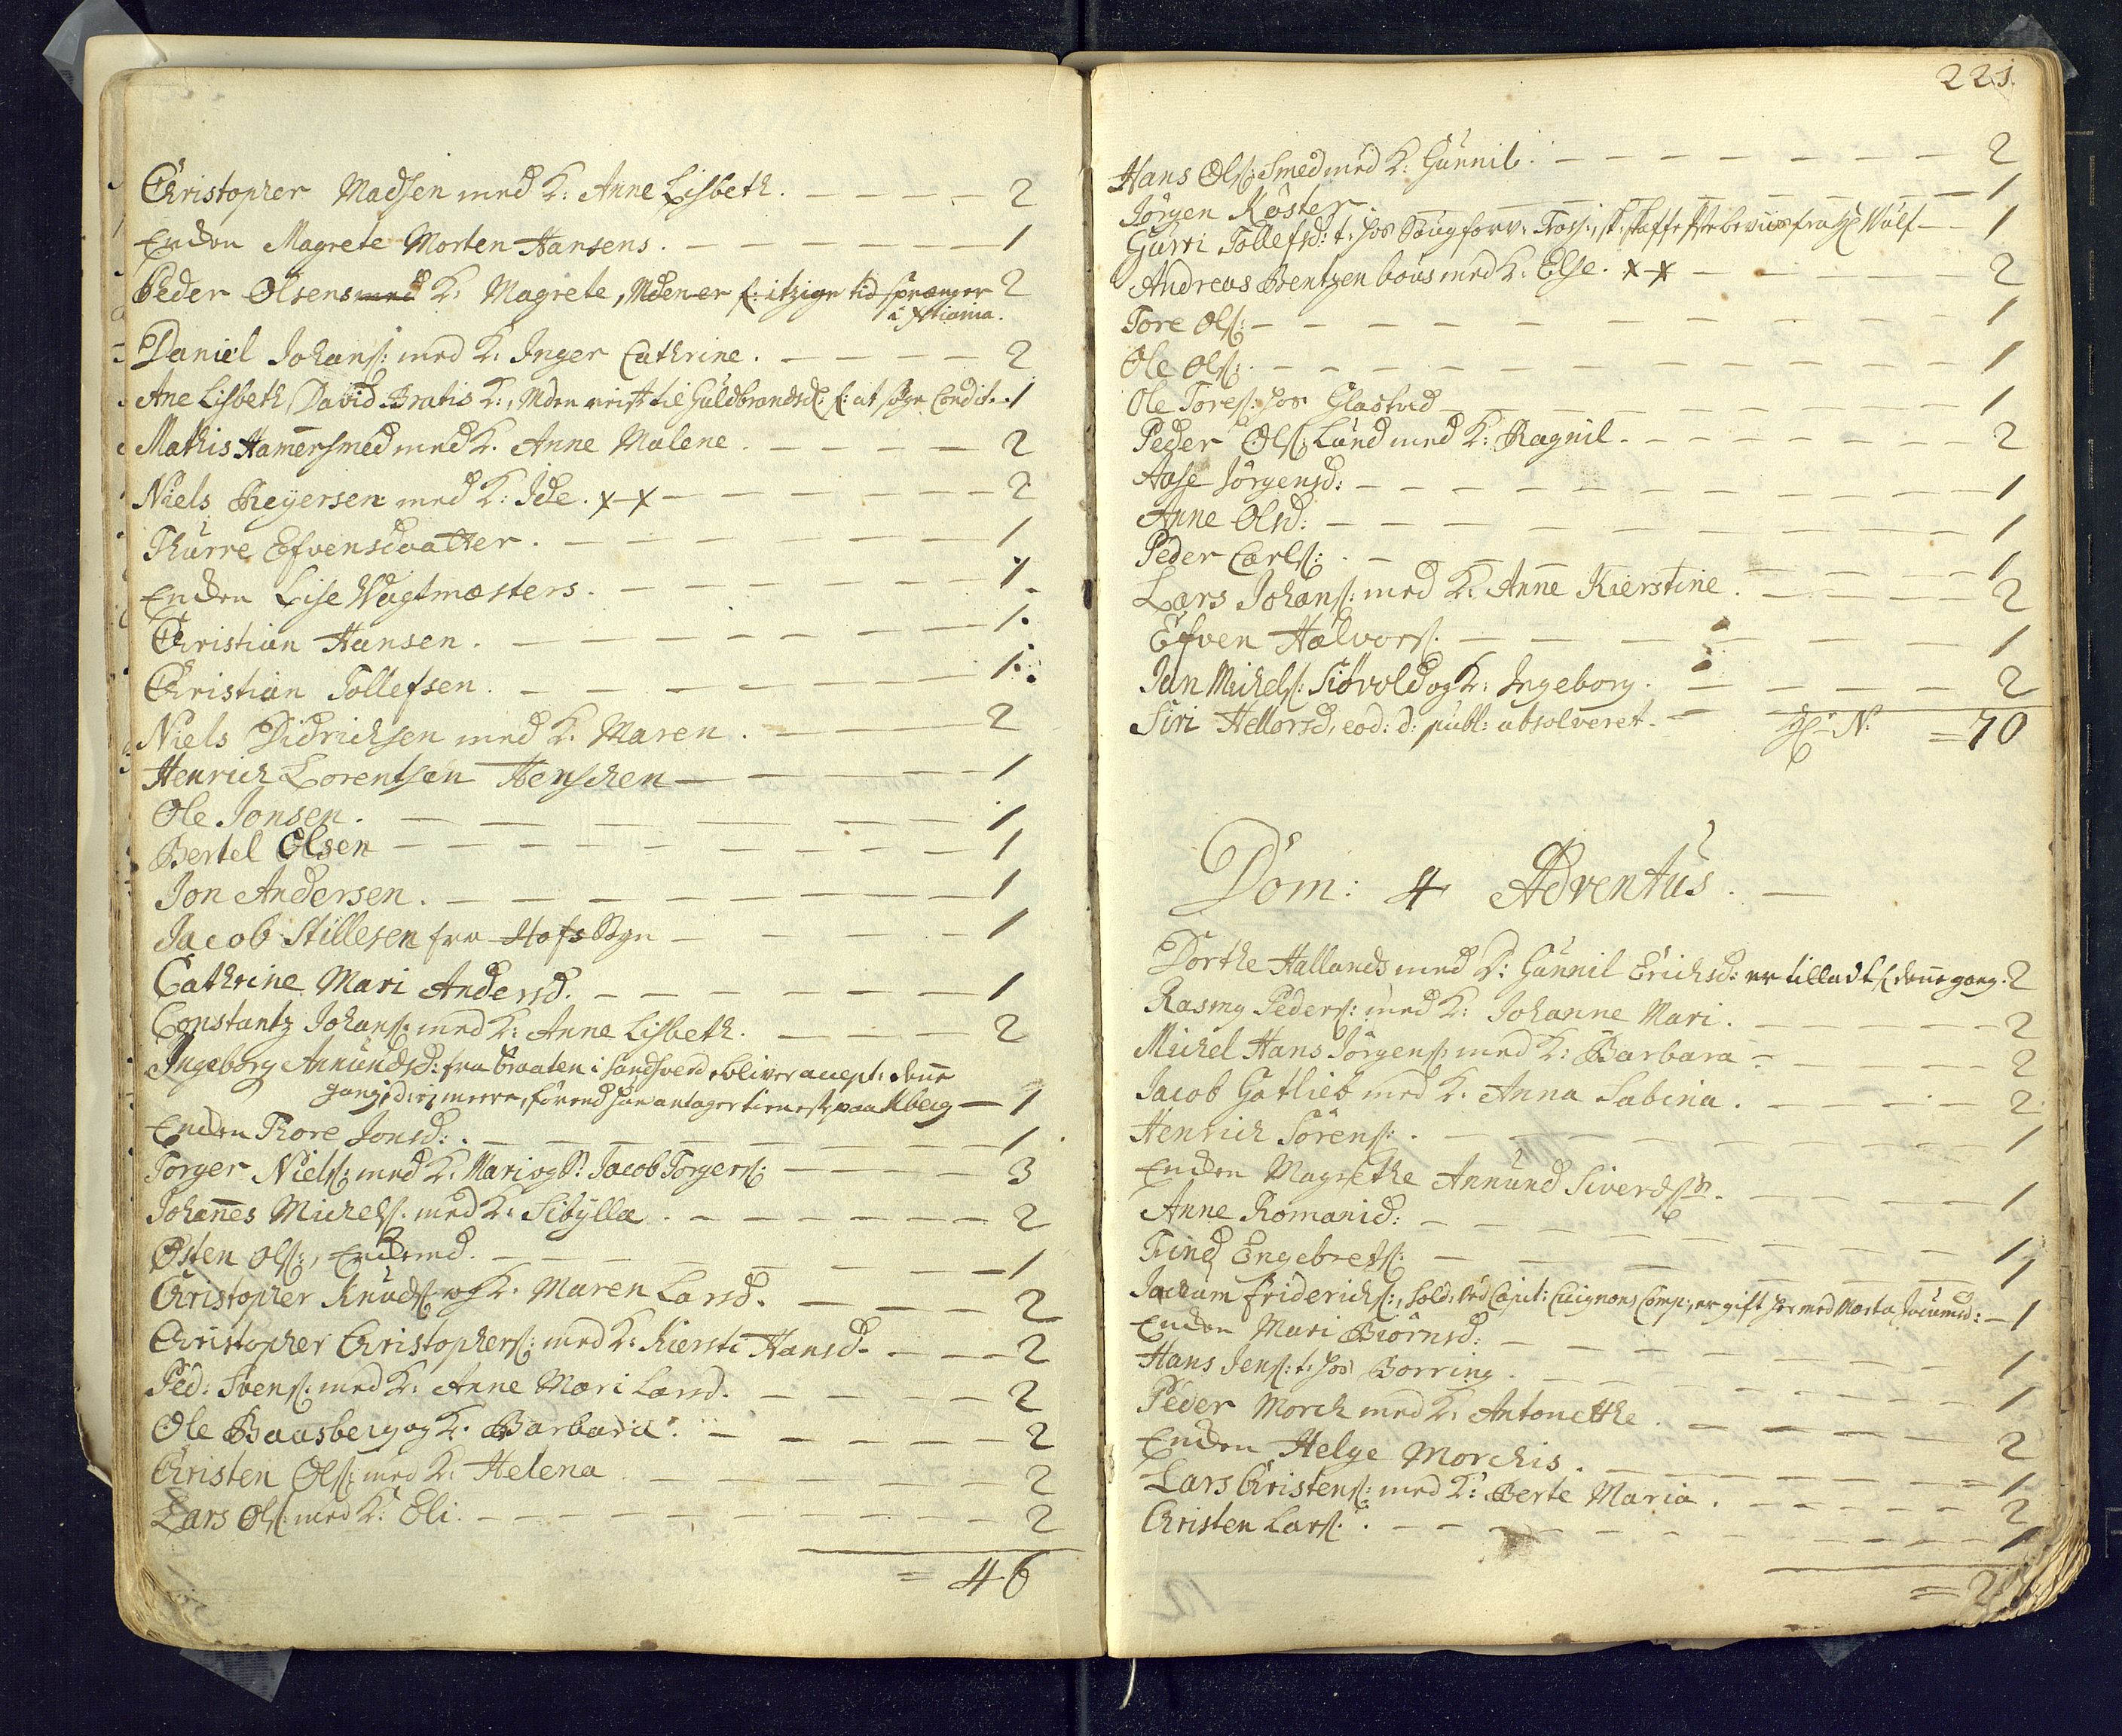 Christopher Madsen med K: Anne Lisbeth. 2
Enchen Magrete Morten Hansens. 1
Peder Olsens med K: Magrete, Mden er f: itzige tid sprænger 2
i Xtiania.
Daniel Johans: med K: Inger Cathrine. 2
Ane Lisbeth David Bratis K:, Mden reist til Guldbrandsd: f: at søge Condit. 1
Mathis Hamersmed med K. Anne Malene. 2
Niels Reyersen med K: Ide. x-x 2
Thurre Efvensdaatter. 1
Enchen Lise Wagtmæsters. 1
Christian Hansen. 1.
Christian Tollefsen. 1.
Niels Didrichsen med K. Maren. 2
Henrich Lorentsen Henschen 1
Ole Jonsen. 1
Bertel Olsen 1
Jon Andersen. 1
Jacob Stillesen fra Hofs Sogn 1
Cathrine Mari Andersd. 1
Constantz Johans: med K: Anne Lisbeth. 2
Ingeborg Amundsd: fra Braaten i Sandsverd bliver accept: denne
gang, d: ej meere, førend hun antager tieneste paa Kberg 1
Enchen Thore Jonsd: 1
Torger Niels: med K: Mari og S: Jacob Torgers: 3
Johannes Michels. med K: Sibylla. 2
Østen Ols:, Enchemd. 1
Christopher Knuds: og K: Maren Larsd. 2
Christopher Christophers: med K: Kiersti Hansd. 2
Ped: Svens: med K: Anne Mari Larsd. 2
Ole Baasberg og K. Barbara. 2
Christen Ols: med K: Helena 2
Lars Ols: med K: Eli. 2
= 46
221.
Hans Ols: Smed med K: Gunnil. 2
Jørgen Køster. 1
Gurri Tollefsd: t: hos Fougforv: 1
Andreas Bentzen bous med K: Else. x-x 2
Tore Ols: 1
Ole Ols: 1
Ole Tores: hos Glastad 1
Peder Ols: Lund med K: Ragnil. 2
Aase Jørgensd: 1
Anne Olsd: 1
Peder Carls: 1
Lars Johans: med K: Anne Kierstine. 2
Efven Halvors: 1
Jan Michels: Siøvold og K: Ingeborg. 2
Siri Hellorsd, eod: d: publ: absolveret. N: = 70
Dom: 4 Adventus.
Dorthe Hallands med K: Gunnil Erichsd: er tilladt f denne gang. 2
Rasmg Peders: med K: Johanne Mari. 2
Michel Hans Jørgens: med K: Barbara 2
Jacob Gotlieb med K. Anna Sabina. 2
Henrich Sørens: 1
Enchen Magrethe Annund Siverds. 1
Anne Romanid: 1
Find Engebrets: 1
Jochum Friderichs:, Sold: ved Capit: Cuignons Comp:, er gift her med Marta Jocumsd: 1
Enchen Mari Biørnsd: 1
Hans Jens: t: hos Borring. 1
Peder Morch med K: Antonethe. 2
Enchen Helge Morchis. 1
Lars Christens: med K: Berte Maria. 2
Christen Lars: 1